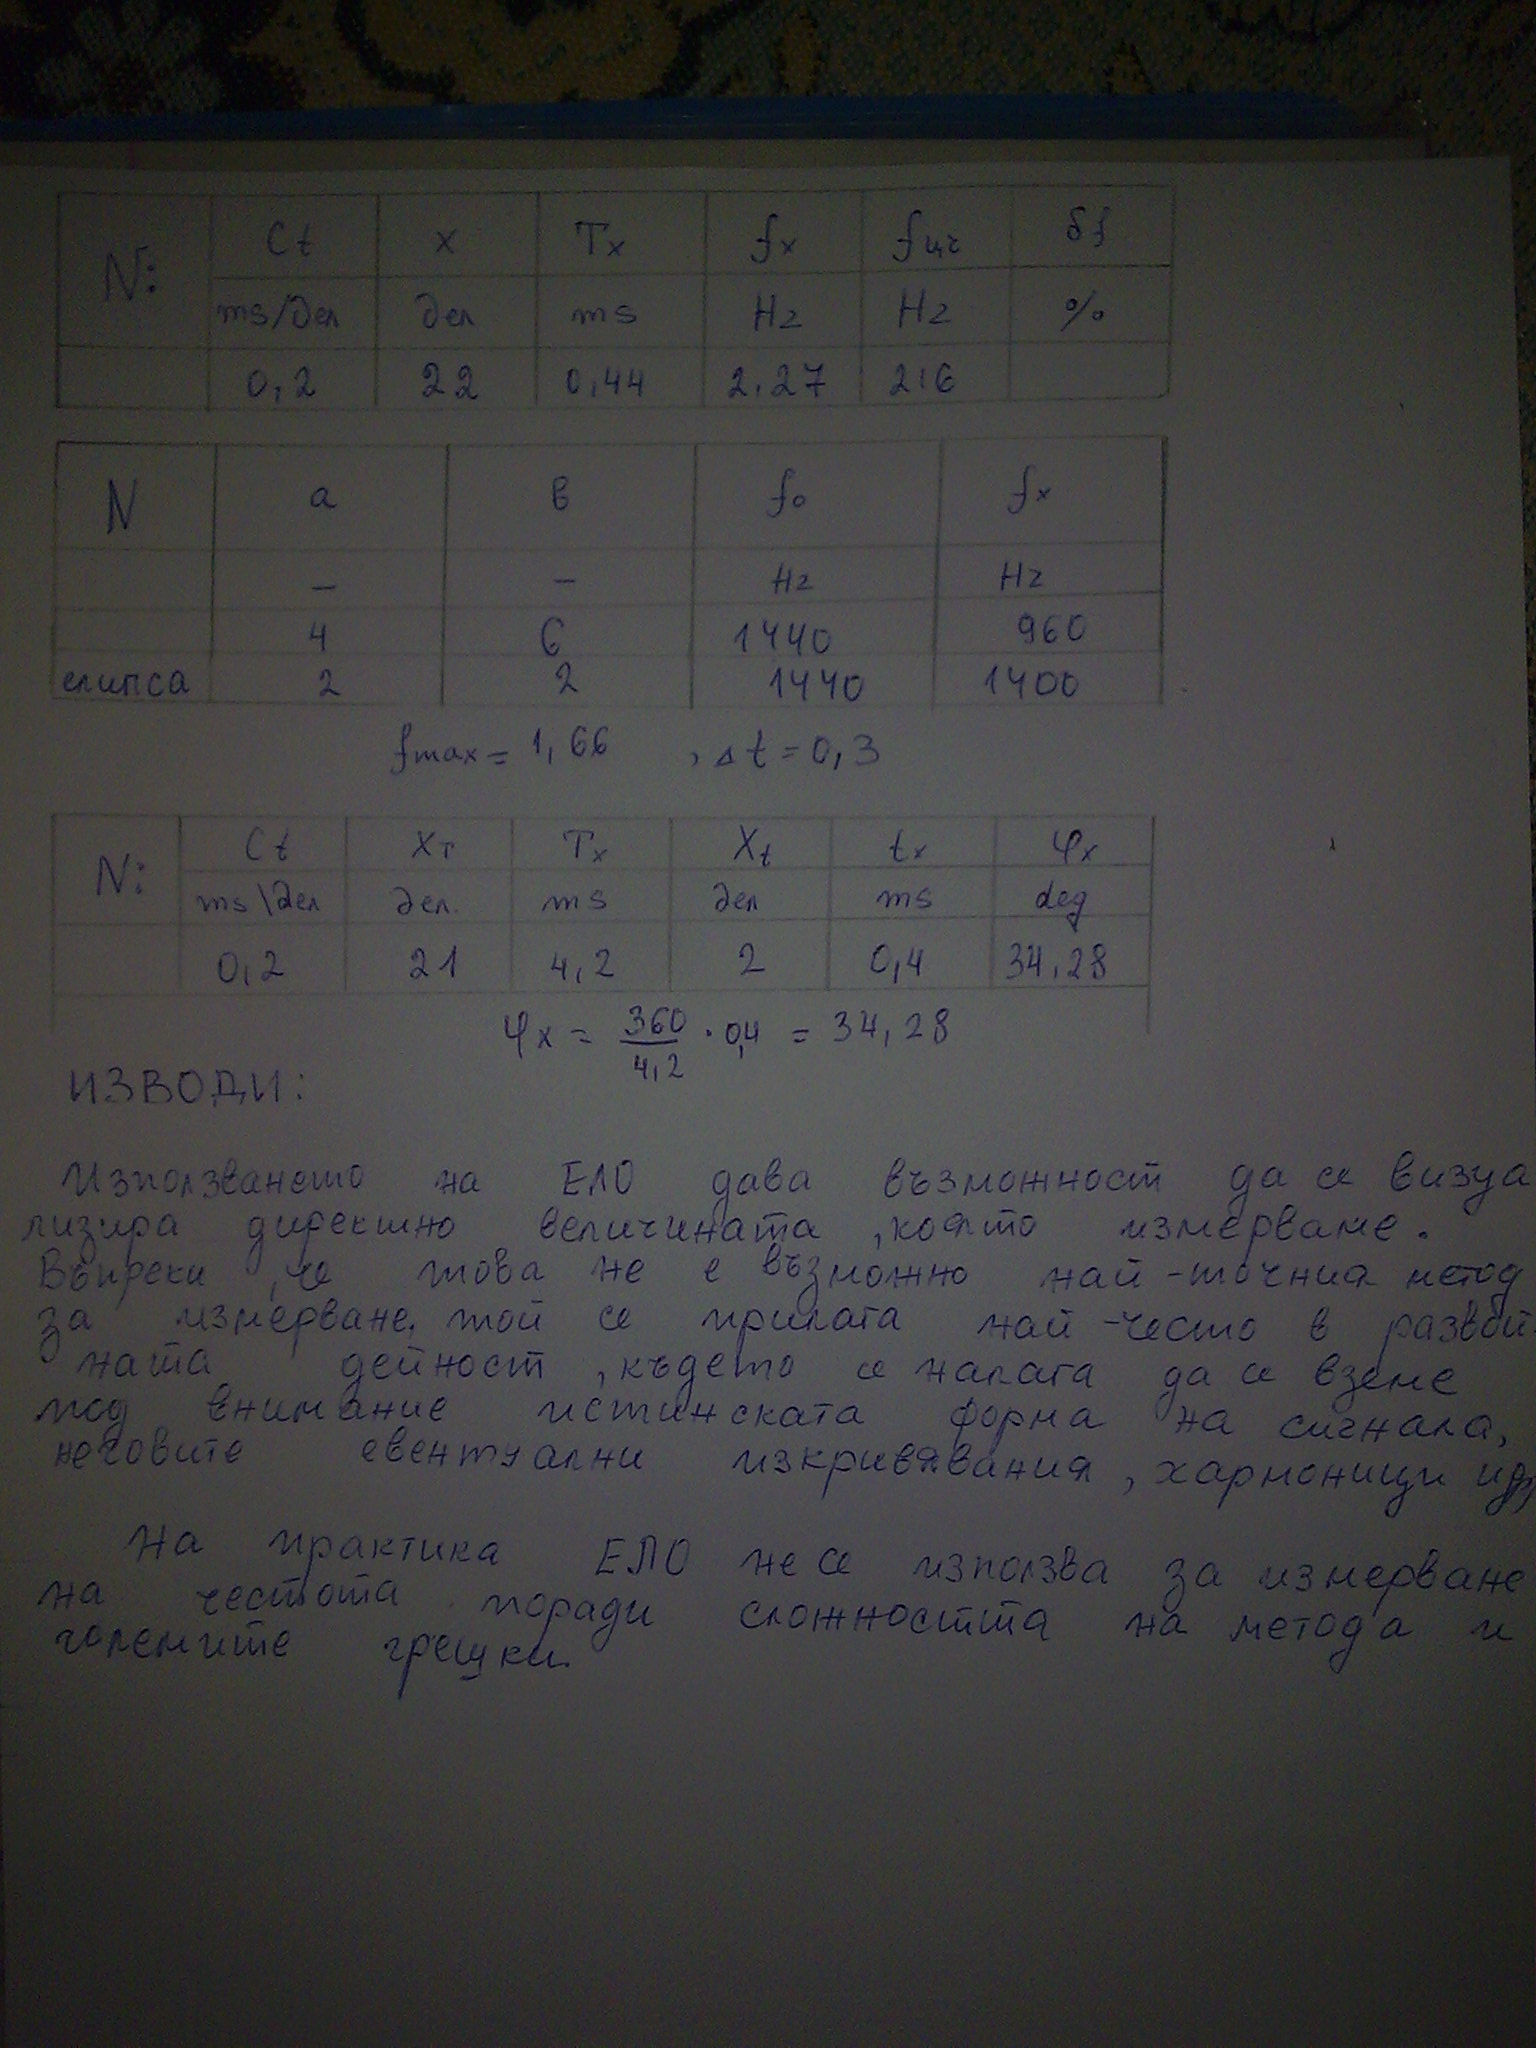 N: Ct x Tx fx fцч δf
ms/дел дел ms Hz Hz %
0,2 22 0,44 2.27 2.6
N a в fo fx
– – Hz Hz
4 6 1440 960
елипса 2 2 1440 1400
fmax = 1,66 , Δt = 0,3
N: Ct XT Tx Xt tx φx
ms\дел дел. ms дел ms deg
0,2 21 4,2 2 0,4 34,28
φx = 360/4,2 · 0,4 = 34,28
ИЗВОДИ:
Използването на ЕЛО дава възможност да се визуа
лизира директно величината, която измерваме.
Въпреки, че това не е възможно най-точния метод
за измерване, той се прилага най-често в развой
ната дейност, където се налага да се вземе
под внимание истинската форма на сигнала,
неговите евентуални изкривявания, хармоници и др,
На практика ЕЛО не се използва за измерване
на честота поради сложността на метода и
големите грешки.